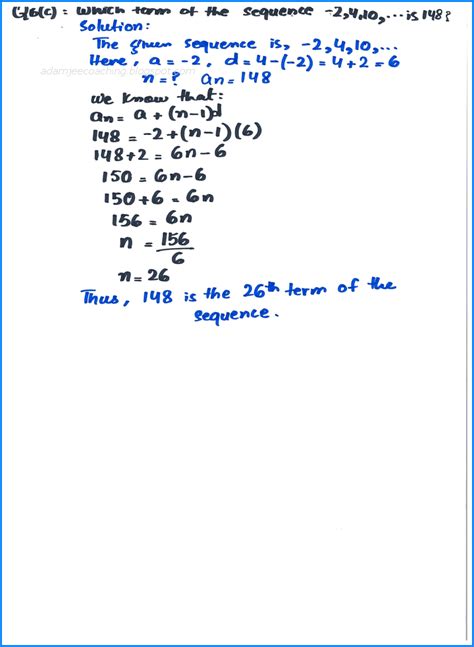 Q6(c): Which term of the sequence -2,4,10,... is 148?
Solution:
The given sequence is, -2,4,10,...
Here, a = -2, d = 4-(-2) = 4+2 = 6
adamjeecoaching.blogspot.com
n = ? an = 148
we know that:
an = a + (n-1)d
148 = -2+(n-1)(6)
148+2 = 6n-6
150 = 6n-6
150+6 = 6n
156 = 6n
n = 156/6
n = 26
Thus, 148 is the 26th term of the
sequence.